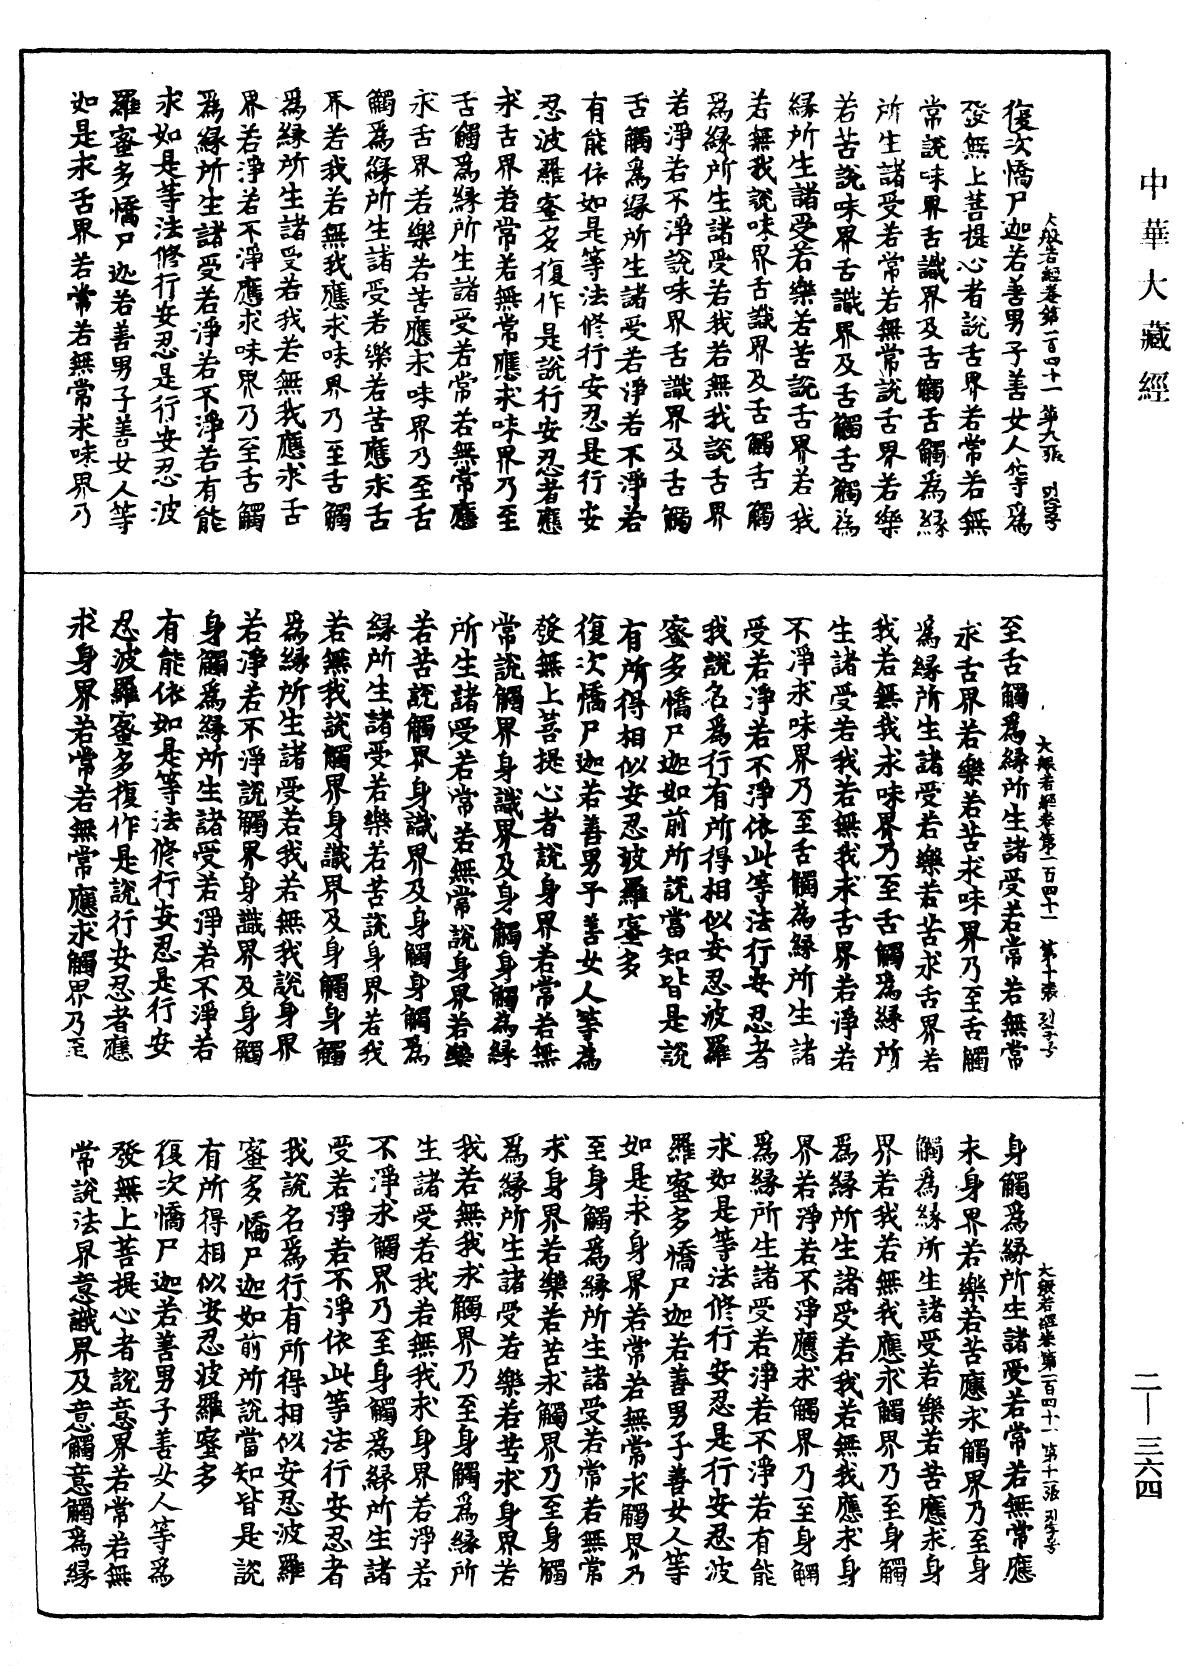 中華大藏經
大般若經卷第一百四十一 第九張
復次憍尸迦若善男子善女人等爲
發無上菩提心者說舌界若常若無
常說味界舌識界及舌觸舌觸爲緣
所生諸受若常若無常說舌界若樂
若苦說味界舌識界及舌觸舌觸爲
緣所生諸受若樂若苦說舌界若我
若無我說味界舌識界及舌觸舌觸
爲緣所生諸受若我若無我說舌界
若淨若不淨說味界舌識界及舌觸
舌觸爲緣所生諸受若淨若不淨若
有能依如是等法修行安忍是行安
忍波羅蜜多復作是說行安忍者應
求舌界若常若無常應求味界乃至
舌觸爲緣所生諸受若常若無常應
求舌界若樂若苦應求味界乃至舌
觸爲緣所生諸受若樂若苦應求舌
界若我若無我應求味界乃至舌觸
爲緣所生諸受若我若無我應求舌
界若淨若不淨應求味界乃至舌觸
爲緣所生諸受若淨若不淨若有能
求如是等法修行安忍是行安忍波
羅蜜多憍尸迦若善男子善女人等
如是求舌界若常若無常求味界乃
大般若經卷第一百四十一 第十張
至舌觸爲緣所生諸受若常若無常
求舌界若樂若苦求味界乃至舌觸
爲緣所生諸受若樂若苦求舌界若
我若無我求味界乃至舌觸爲緣所
生諸受若我若無我求舌界若淨若
不淨求味界乃至舌觸爲緣所生諸
受若淨若不淨依此等法行安忍者
我說名爲行有所得相似安忍波羅
蜜多憍尸迦如前所說當知皆是說
有所得相似安忍波羅蜜多
復次憍尸迦若善男子善女人等爲
發無上菩提心者說身界若常若無
常說觸界身識界及身觸身觸爲緣
所生諸受若常若無常說身界若樂
若苦說觸界身識界及身觸身觸爲
緣所生諸受若樂若苦說身界若我
若無我說觸界身識界及身觸身觸
爲緣所生諸受若我若無我說身界
若淨若不淨說觸界身識界及身觸
身觸爲緣所生諸受若淨若不淨若
有能依如是等法修行安忍是行安
忍波羅蜜多復作是說行安忍者應
求身界若常若無常應求觸界乃至
大般若經卷第一百四十一 第十一張
身觸爲緣所生諸受若常若無常應
求身界若樂若苦應求觸界乃至身
觸爲緣所生諸受若樂若苦應求身
界若我若無我應求觸界乃至身觸
爲緣所生諸受若我若無我應求身
界若淨若不淨應求觸界乃至身觸
爲緣所生諸受若淨若不淨若有能
求如是等法修行安忍是行安忍波
羅蜜多憍尸迦若善男子善女人等
如是求身界若常若無常求觸界乃
至身觸爲緣所生諸受若常若無常
求身界若樂若苦求觸界乃至身觸
爲緣所生諸受若樂若苦求身界若
我若無我求觸界乃至身觸爲緣所
生諸受若我若無我求身界若淨若
不淨求觸界乃至身觸爲緣所生諸
受若淨若不淨依此等法行安忍者
我說名爲行有所得相似安忍波羅
蜜多憍尸迦如前所說當知皆是說
有所得相似安忍波羅蜜多
復次憍尸迦若善男子善女人等爲
發無上菩提心者說意界若常若無
常說法界意識界及意觸意觸爲緣
二—三六四